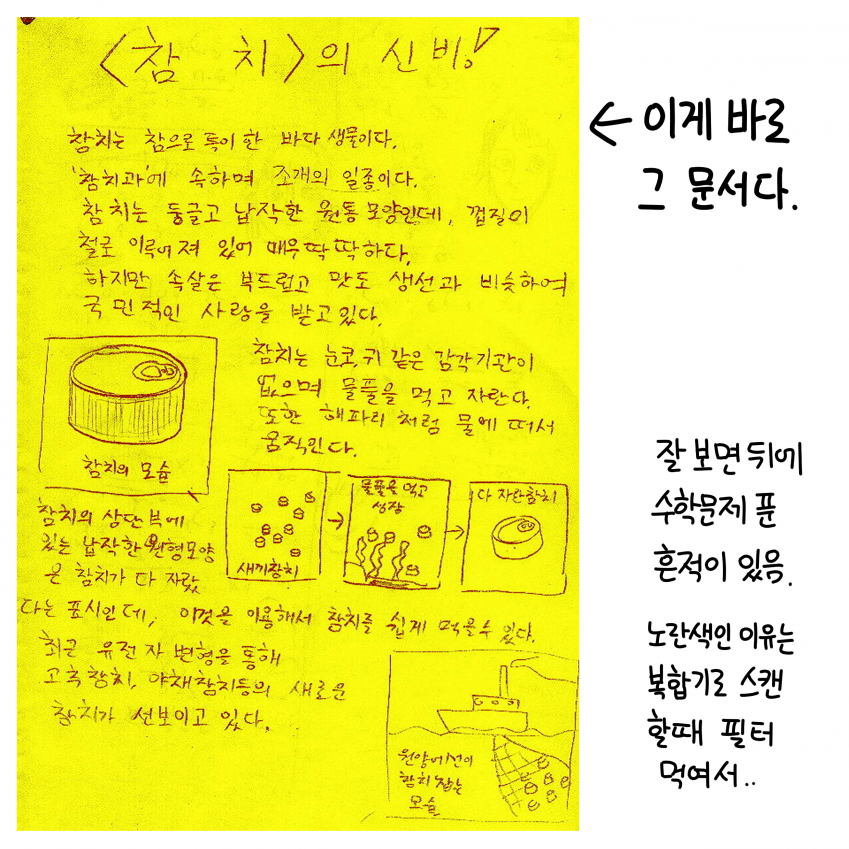 <참 치>의 신비!
참치는 참으로 특이한 바다 생물이다.
'참치과'에 속하며 조개의 일종이다.
참치는 둥글고 납작한 원통 모양인데, 껍질이
철로 이루어져 있어 매우 딱딱하다.
하지만 속살은 부드럽고 맛도 생선과 비슷하여
국민적인 사랑을 받고있다.
참치는 눈코,귀 같은 감각기관이
없으며 물풀을 먹고 자란다.
또한 해파리처럼 물에 떠서
움직인다.
참치의 모습
새끼참치
물풀을 먹고
성장
다 자란참치
참치의 상단부에
있는 납작한 원형모양
은 참치가 다 자랐
다는 표시인데, 이것을 이용해서 참치를 쉽게 먹을수 있다.
최근 유전자 변형을 통해
고추참치, 야채참치등의 새로운
참치가 선보이고 있다.
원양어선이
참치 잡는
모습
← 이게 바로
그 문서다.
잘 보면 뒤에
수학문제 푼
흔적이 있음.
노란색인 이유는
복합기로 스캔
할때 필터
먹여서..